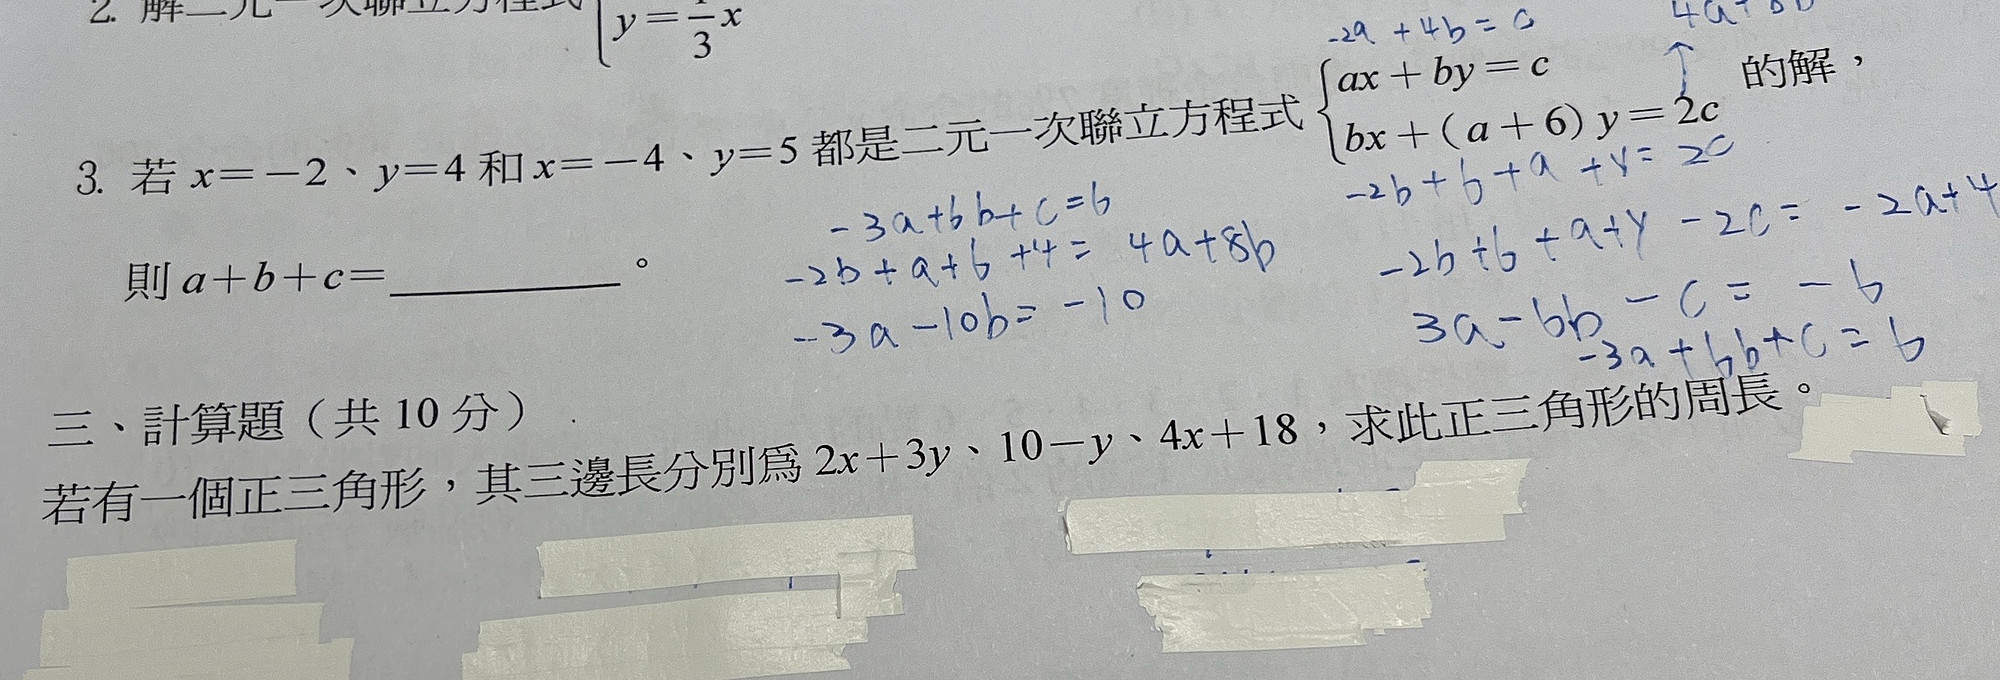 2. 解二元一次聯立方程式 y=1/3 x
-2a+4b=c
4a+8b
3. 若 x=-2、y=4 和 x=-4、y=5 都是二元一次聯立方程式 { ax+by=c
bx+(a+6)y=2c 的解，
-2b+6+a+y=2c
則 a+b+c=__________。
-3a+6b+c=6
-2b+a+6+4=4a+8b
-3a-10b=-10
-2b+6+a+y-2c=-2a+4
3a-6b-c=-6
-3a+6b+c=6
三、計算題（共 10 分）
若有一個正三角形，其三邊長分別爲 2x+3y、10-y、4x+18，求此正三角形的周長。